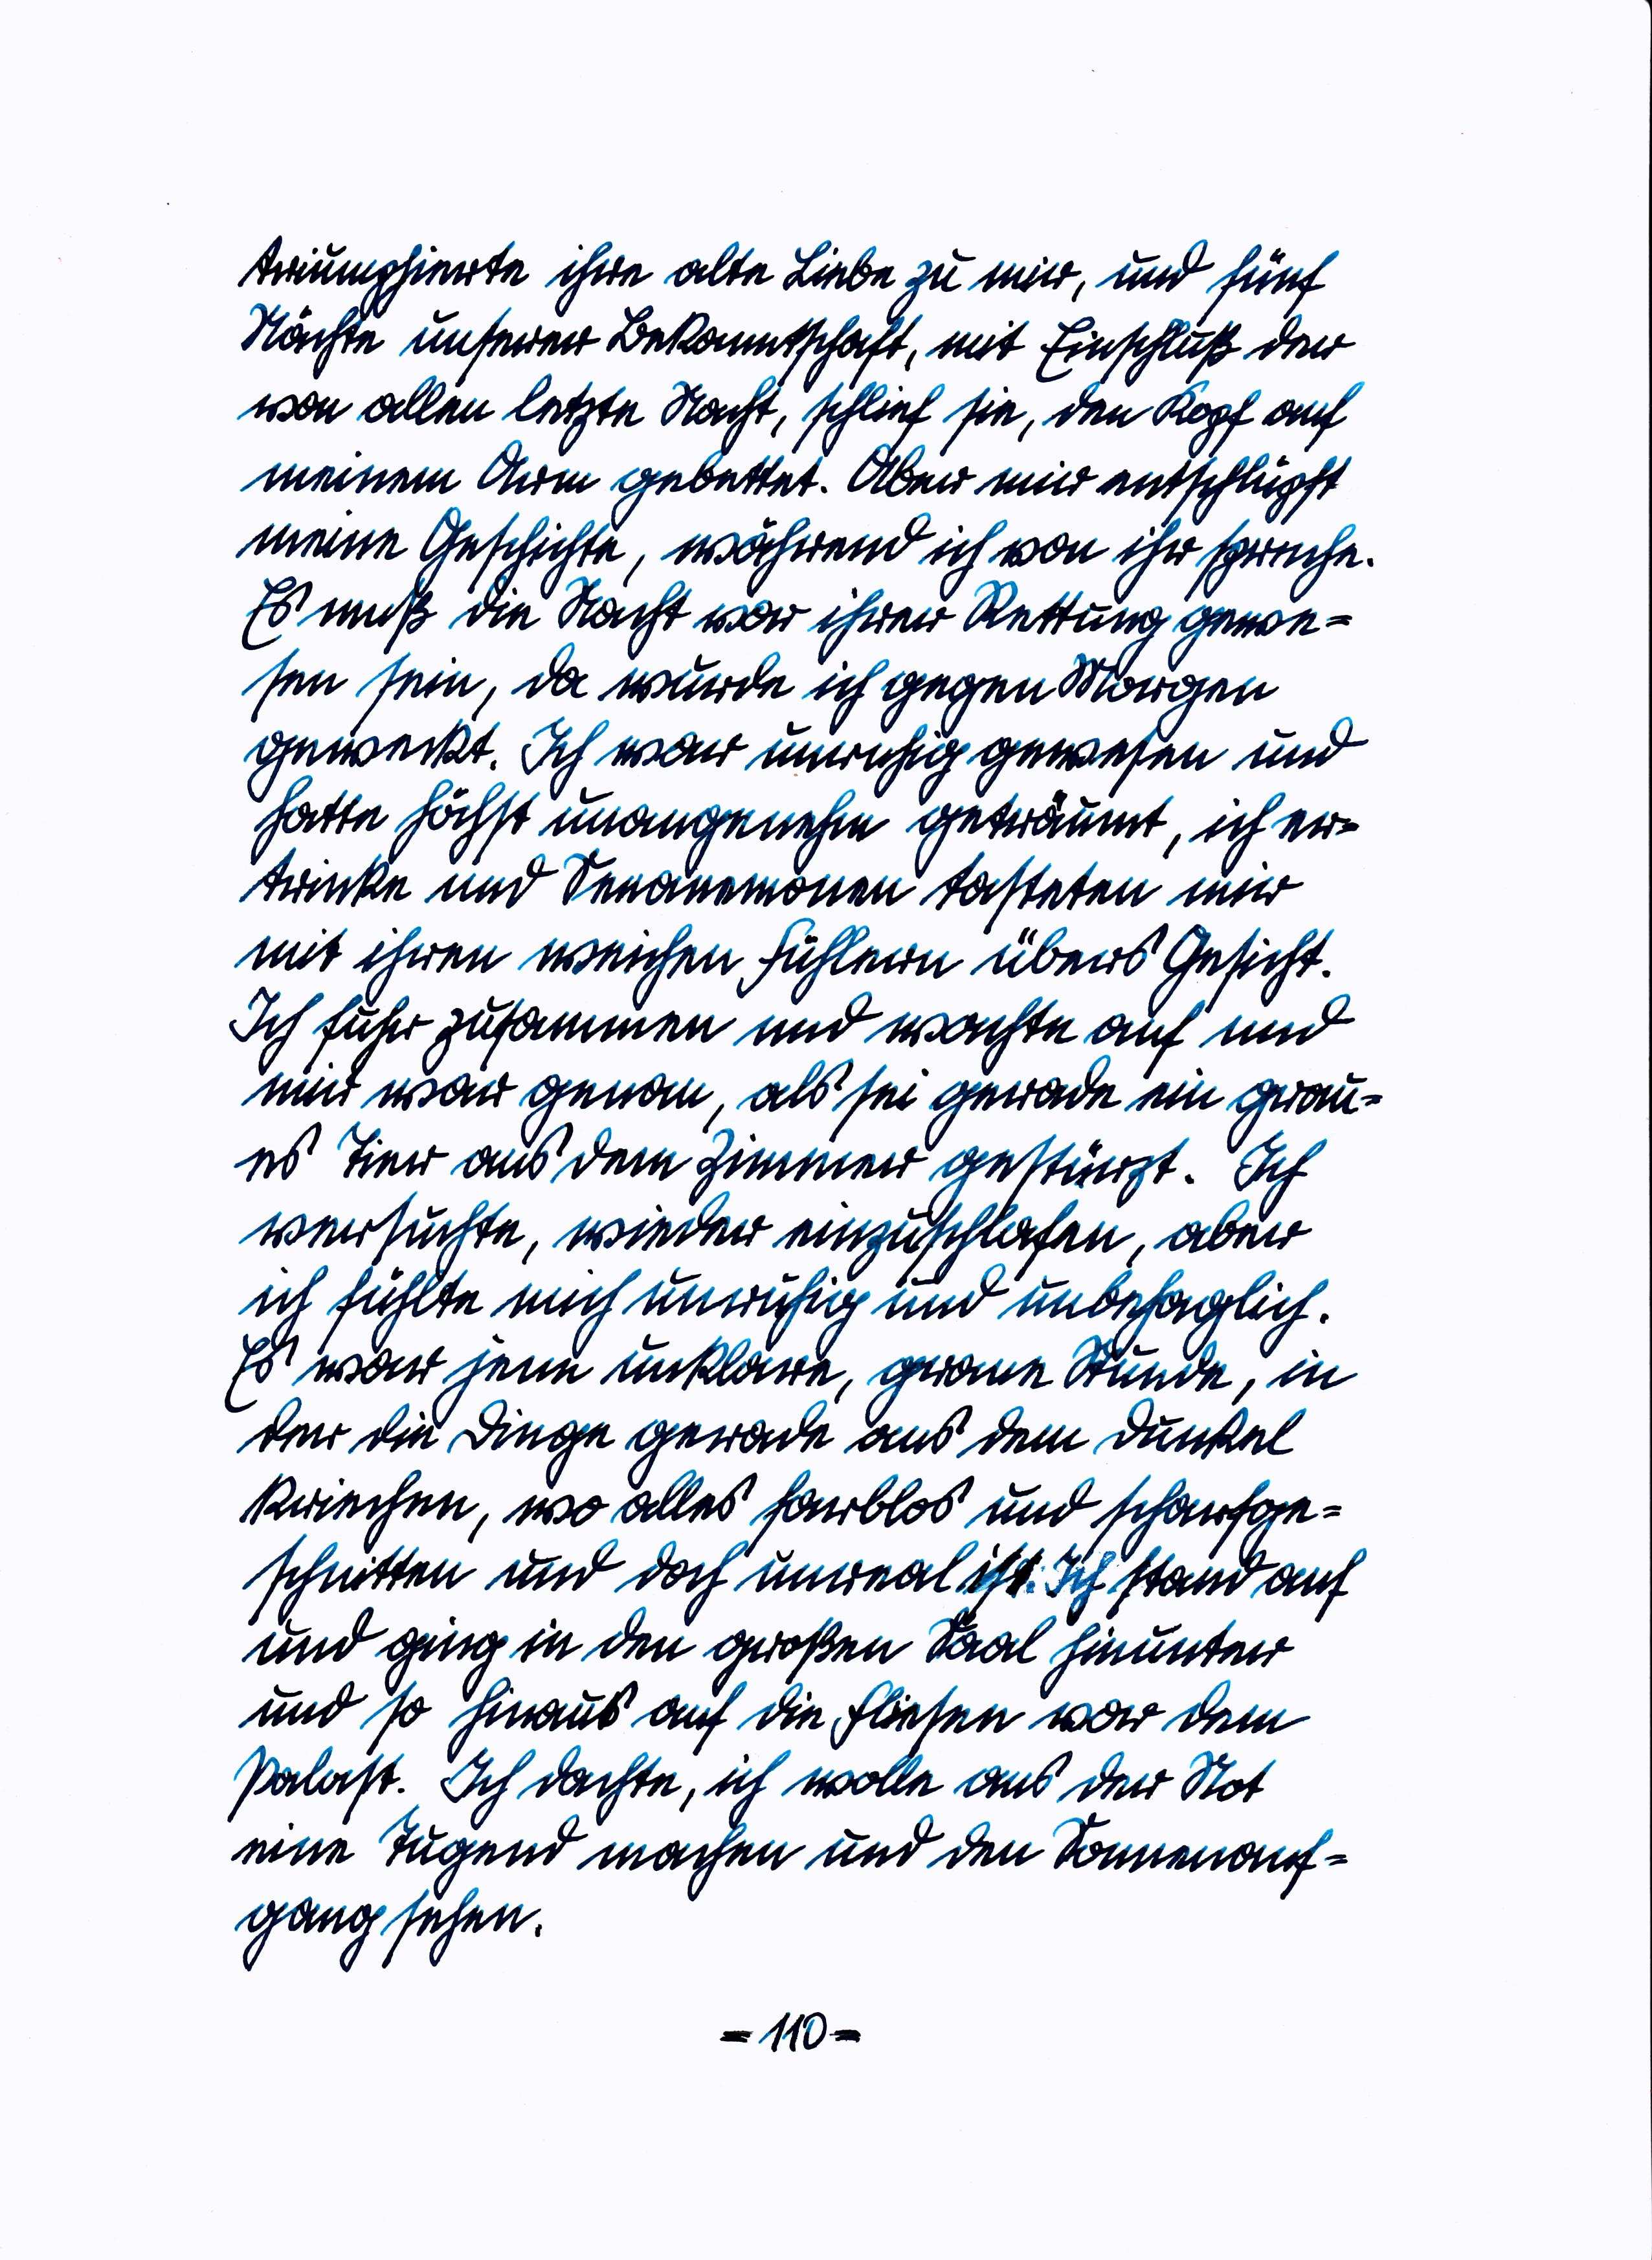 triumphierte ihre alte Liebe zu mir, und fünf
Nächte unserer Bekanntschaft, mit Einschluß der
von allen letzte Nacht, schlief sie, den Kopf auf
meinem Arm gebettet. Aber mir entschlüpft
meine Geschichte, während ich von ihr spreche.
Es muß die Nacht vor ihrer Rettung gewe=
sen sein, da wurde ich gegen Morgen
geweckt. Ich war unruhig gewesen und
hatte höchst unangenehm geträumt, ich er=
trinke und Seeanemonen tasteten mir
mit ihren weichen Fühlern übers Gesicht.
Ich fuhr zusammen und wachte auf und
mir war genau, als sei gerade ein grau=
es Tier aus dem Zimmer gestürzt. Ich
versuchte, wieder einzuschlafen, aber
ich fühlte mich unruhig und unbehaglich.
Es war jene unklare, graue Stunde, in
der die Dinge gerade aus dem Dunkel
kriechen, wo alles farblos und scharfge=
schnitten und doch unreal ist. Ich stand auf
und ging in den großen Saal hinunter
und so hinaus auf die Fliesen vor dem
Palast. Ich dachte, ich wolle aus der Not
eine Tugend machen und den Sonnenauf=
gang sehen.
- 110 -